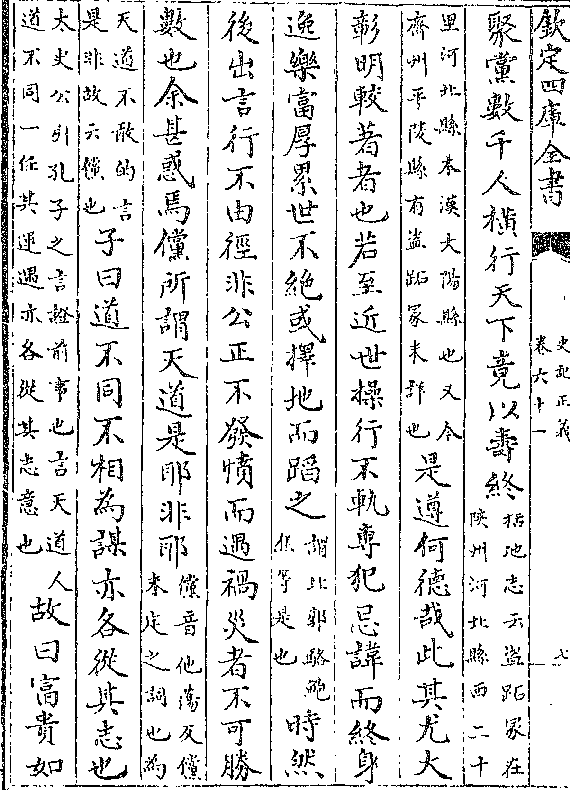 欽定四庫全書
史記正義
卷六十一
七
聚黨數千人橫行天下竟以壽終
括地志云盜跖冢在
陜州河北縣西二十
里河北縣本漢大陽縣也又今
齊州平陵縣有盜跖冢未詳也
是遵何德哉此其尤大
彰明較著者也若至近世操行不軌專犯忌諱而終身
逸樂富厚累世不絕或擇地而蹈之
謂北郭駱鮑
焦等是也
時然
後出言行不由徑非公正不發憤而遇禍災者不可勝
數也余甚惑焉儻所謂天道是耶非耶
儻音他蕩反儻
未定之詞也為
天道不敢的言
是非故云儻也
子曰道不同不相為謀亦各從其志也
太史公引孔子之言證前事也言天道人
道不同一任其運遇亦各從其志意也
故曰富貴如